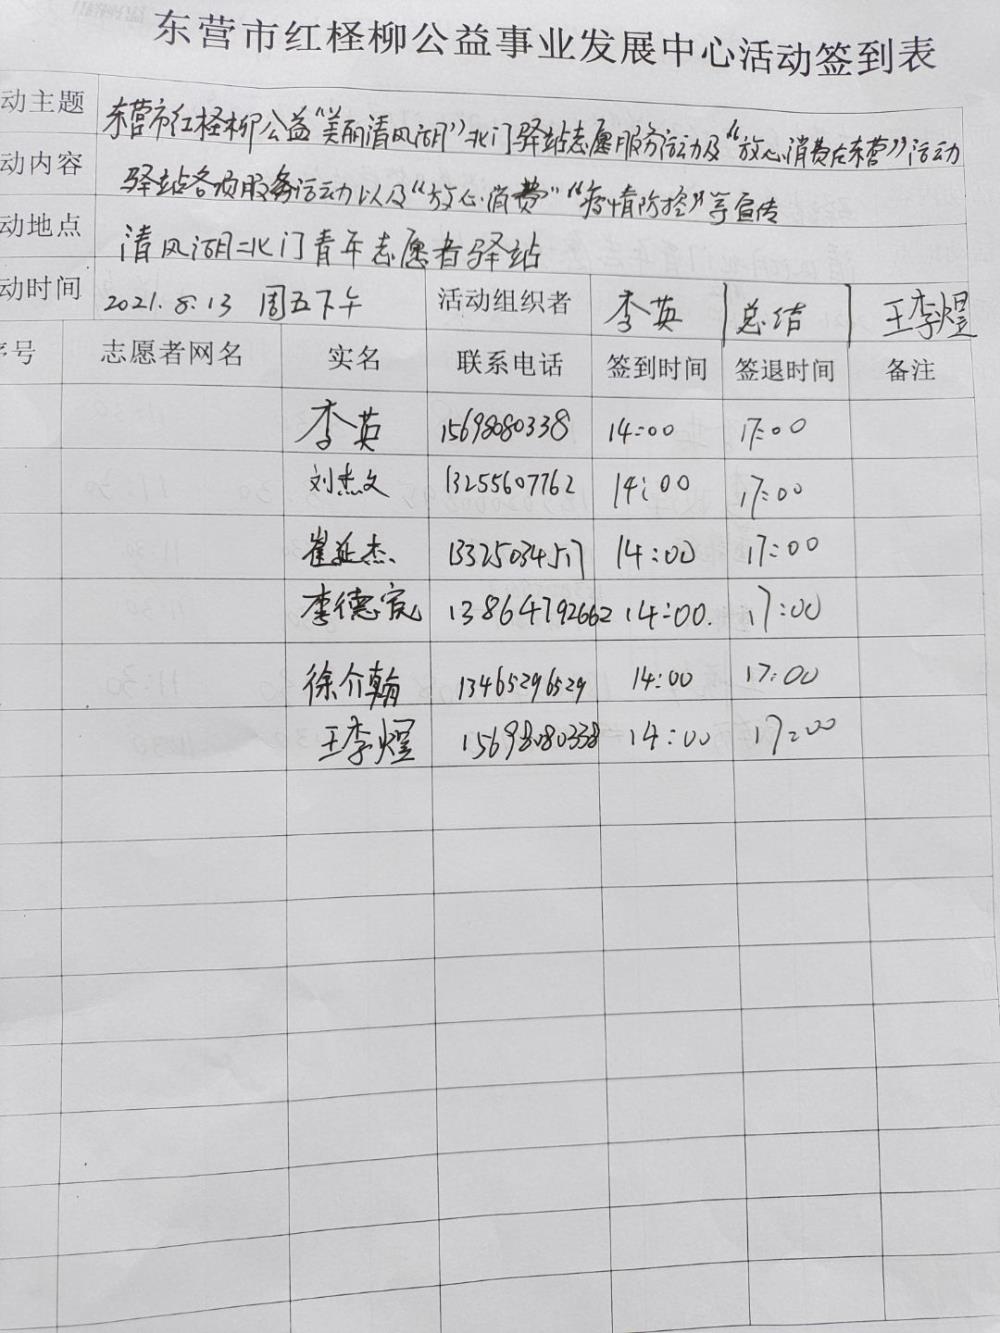 东营市红柽柳公益事业发展中心活动签到表
动主题 东营市红柽柳公益“美丽清风湖”北门驿站志愿服务活动及“放心消费在东营”活动
动内容 驿站各项服务活动以及“放心消费”“疫情防控”等宣传
动地点 清风湖北门青年志愿者驿站
动时间 2021.8.13 周五下午 活动组织者 李英 总结 王李煜
序号 志愿者网名 实名 联系电话 签到时间 签退时间 备注
李英 15698080338 14:00 17:00
刘杰文 13255607762 14:00 17:00
崔延杰 13325034517 14:00 17:00
李德宸 13864792662 14:00. 17:00
徐介翰 13465296529 14:00 17:00
王李煜 15698080338 14:00 17:00